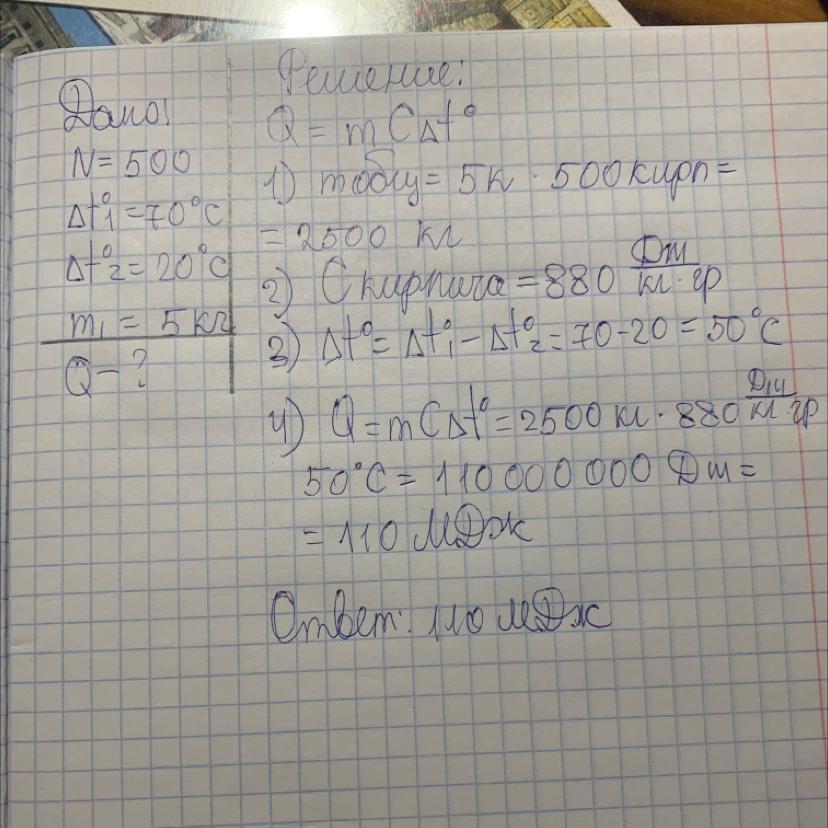 Дано:
N = 500
Δt°1 = 70°C
Δt°2 = 20°C
m1 = 5 кг
Q - ?
Решение:
Q = mCΔt°
1) mобщ = 5к · 500кирп =
= 2500 кг
2) Cкирпича = 880 Дж/кг·гр
3) Δt° = Δt°1 - Δt°2 = 70-20 = 50°C
4) Q = mCΔt° = 2500 кг · 880 Дж/кг·гр
50°C = 110 000 000 Дж =
= 110 МДж
Ответ: 110 МДж